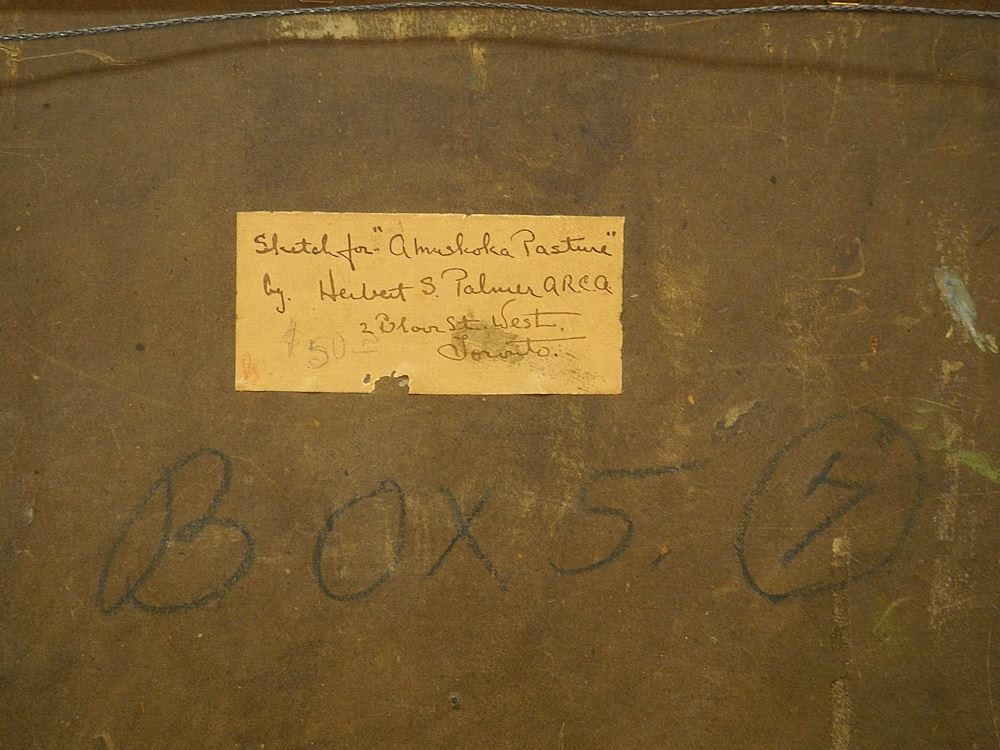 Sketch for "A Muskoka Pasture"
by. Herbert S. Palmer A.R.C.A
2 Bloor St. West.
$50
Toronto.
BOX 5. 7